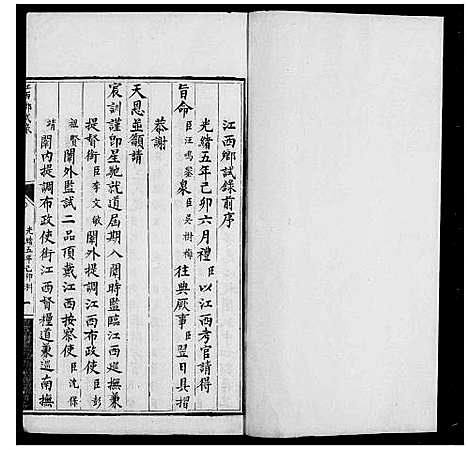 江西鄉試錄前序
光緒五年己卯六月禮臣以江西考官請得
旨命臣汪鳴鑾臬臣吳樹梅往典厥事臣翌日具摺
恭謝
天恩並籲請
宸訓謹卽星馳就道屆期入闈時監臨江西巡撫兼
提督銜臣李文敏闈外提調江西布政使臣彭
祖賢闈外監試二品頂戴江西按察使臣沈保
靖闈內提調布政使銜江西督糧道兼巡南撫
江西鄉試錄
光緒五年己卯科